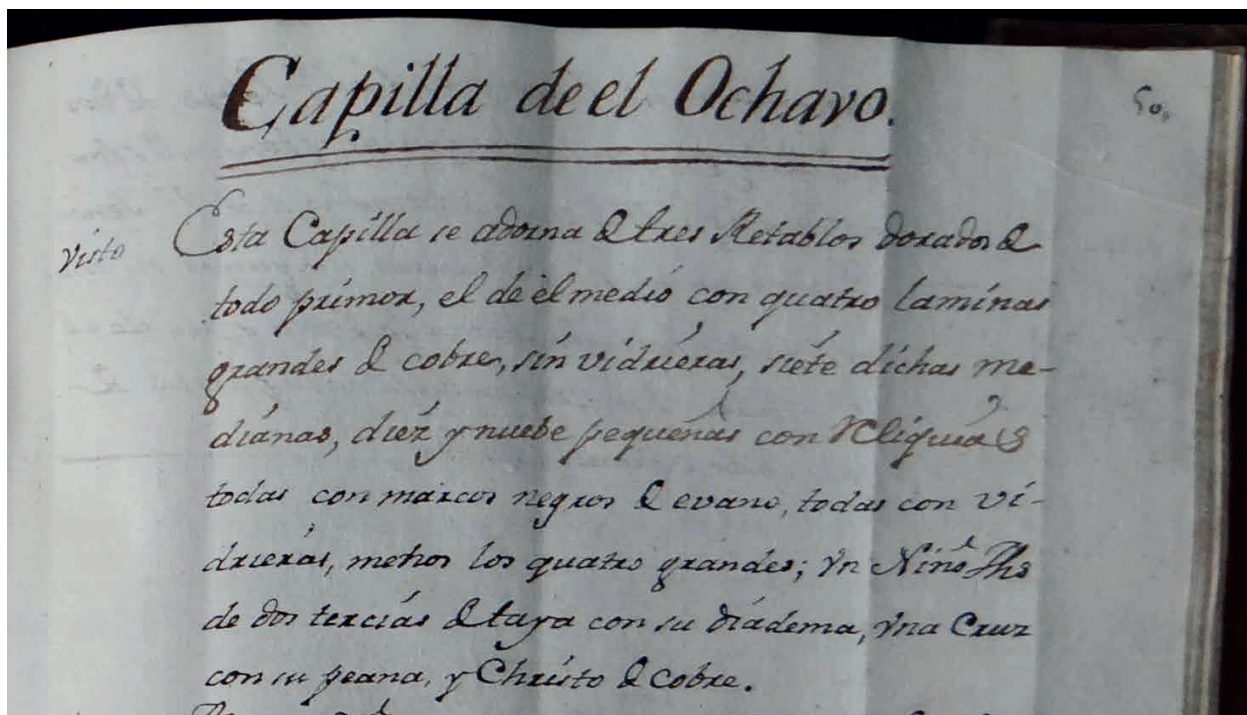 Capilla de el Ochavo.
50,,
visto
Esta Capilla se adorna de tres Retablos dorados de
todo primor, el de el medio con quatro laminas
grandes de cobre, sin vidrieras, siete dichas me-
dianas, diez y nuebe pequeñas con Reliquias
todas con marcos negros de evano, todas con vi-
drieras, menos los quatro grandes; Yn Niño Jhs
de dos tercias de taya con su diadema, Yna Cruz
con su peana, y Christo de cobre.